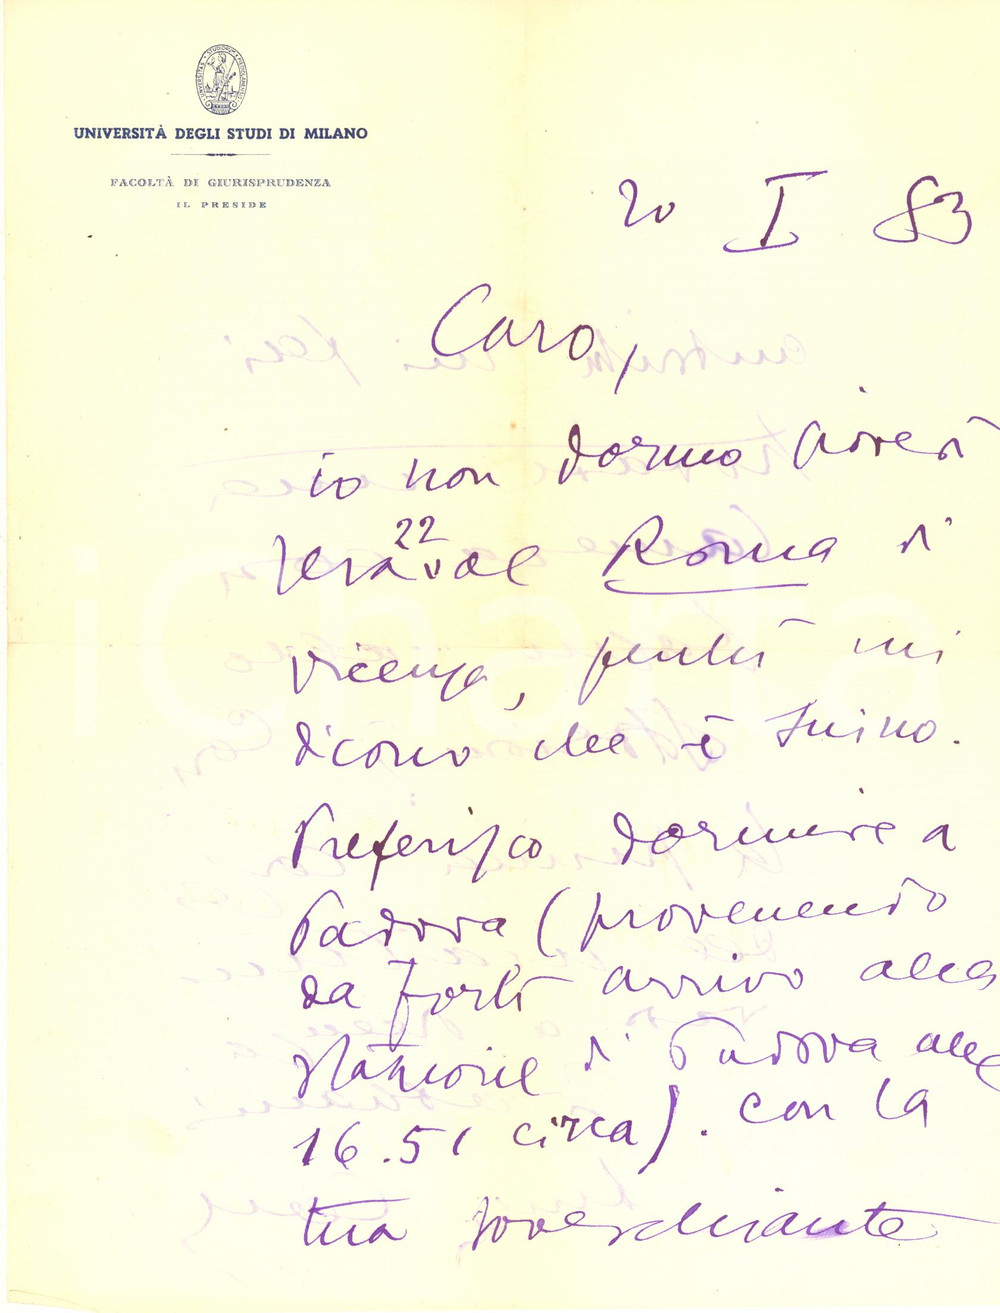 UNIVERSITÀ DEGLI STUDI DI MILANO
FACOLTÀ DI GIURISPRUDENZA
IL PRESIDE
20 I 83
Caro,
io non dormo giovedì
sera 22 al Roma di
Vicenza, perché mi
dicono che è
Preferisco dormire a
Padova (provenendo
da Forlì arrivo alla
stazione di Padova alle
16.51 circa). Con la
tua soverchiante